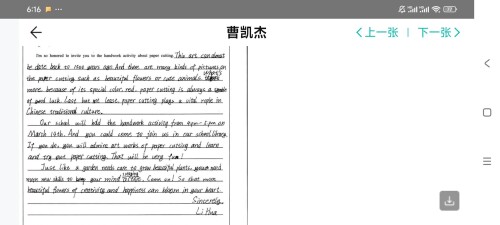 6:16
曹凯杰
上一张 | 下一张
I'm so honored to invite you to the handwork activity about paper cutting. This art can almost
be date back to 1500 years ago. And there are many kinds of pictures on
the paper cutting such as beautiful flowers or cute animals. What's
more because of its special color red, paper cutting is always a symbol
of good luck. Last but not least, paper cutting plays a vital role in
Chinese traditional culture.
Our school will hold the handwork activity from 4pm-5pm on
March 19th. And you could come to join us in our school library.
If you do, you will admire art works of paper cutting and learn
and try out paper cutting. That will be very fun!
Just like a garden needs care to grow beautiful plants, you need
more new skills to keep your mind Come on! So that more
beautiful flowers of creativity and happiness can bloom in your heart.
Sincerely,
Li Hua